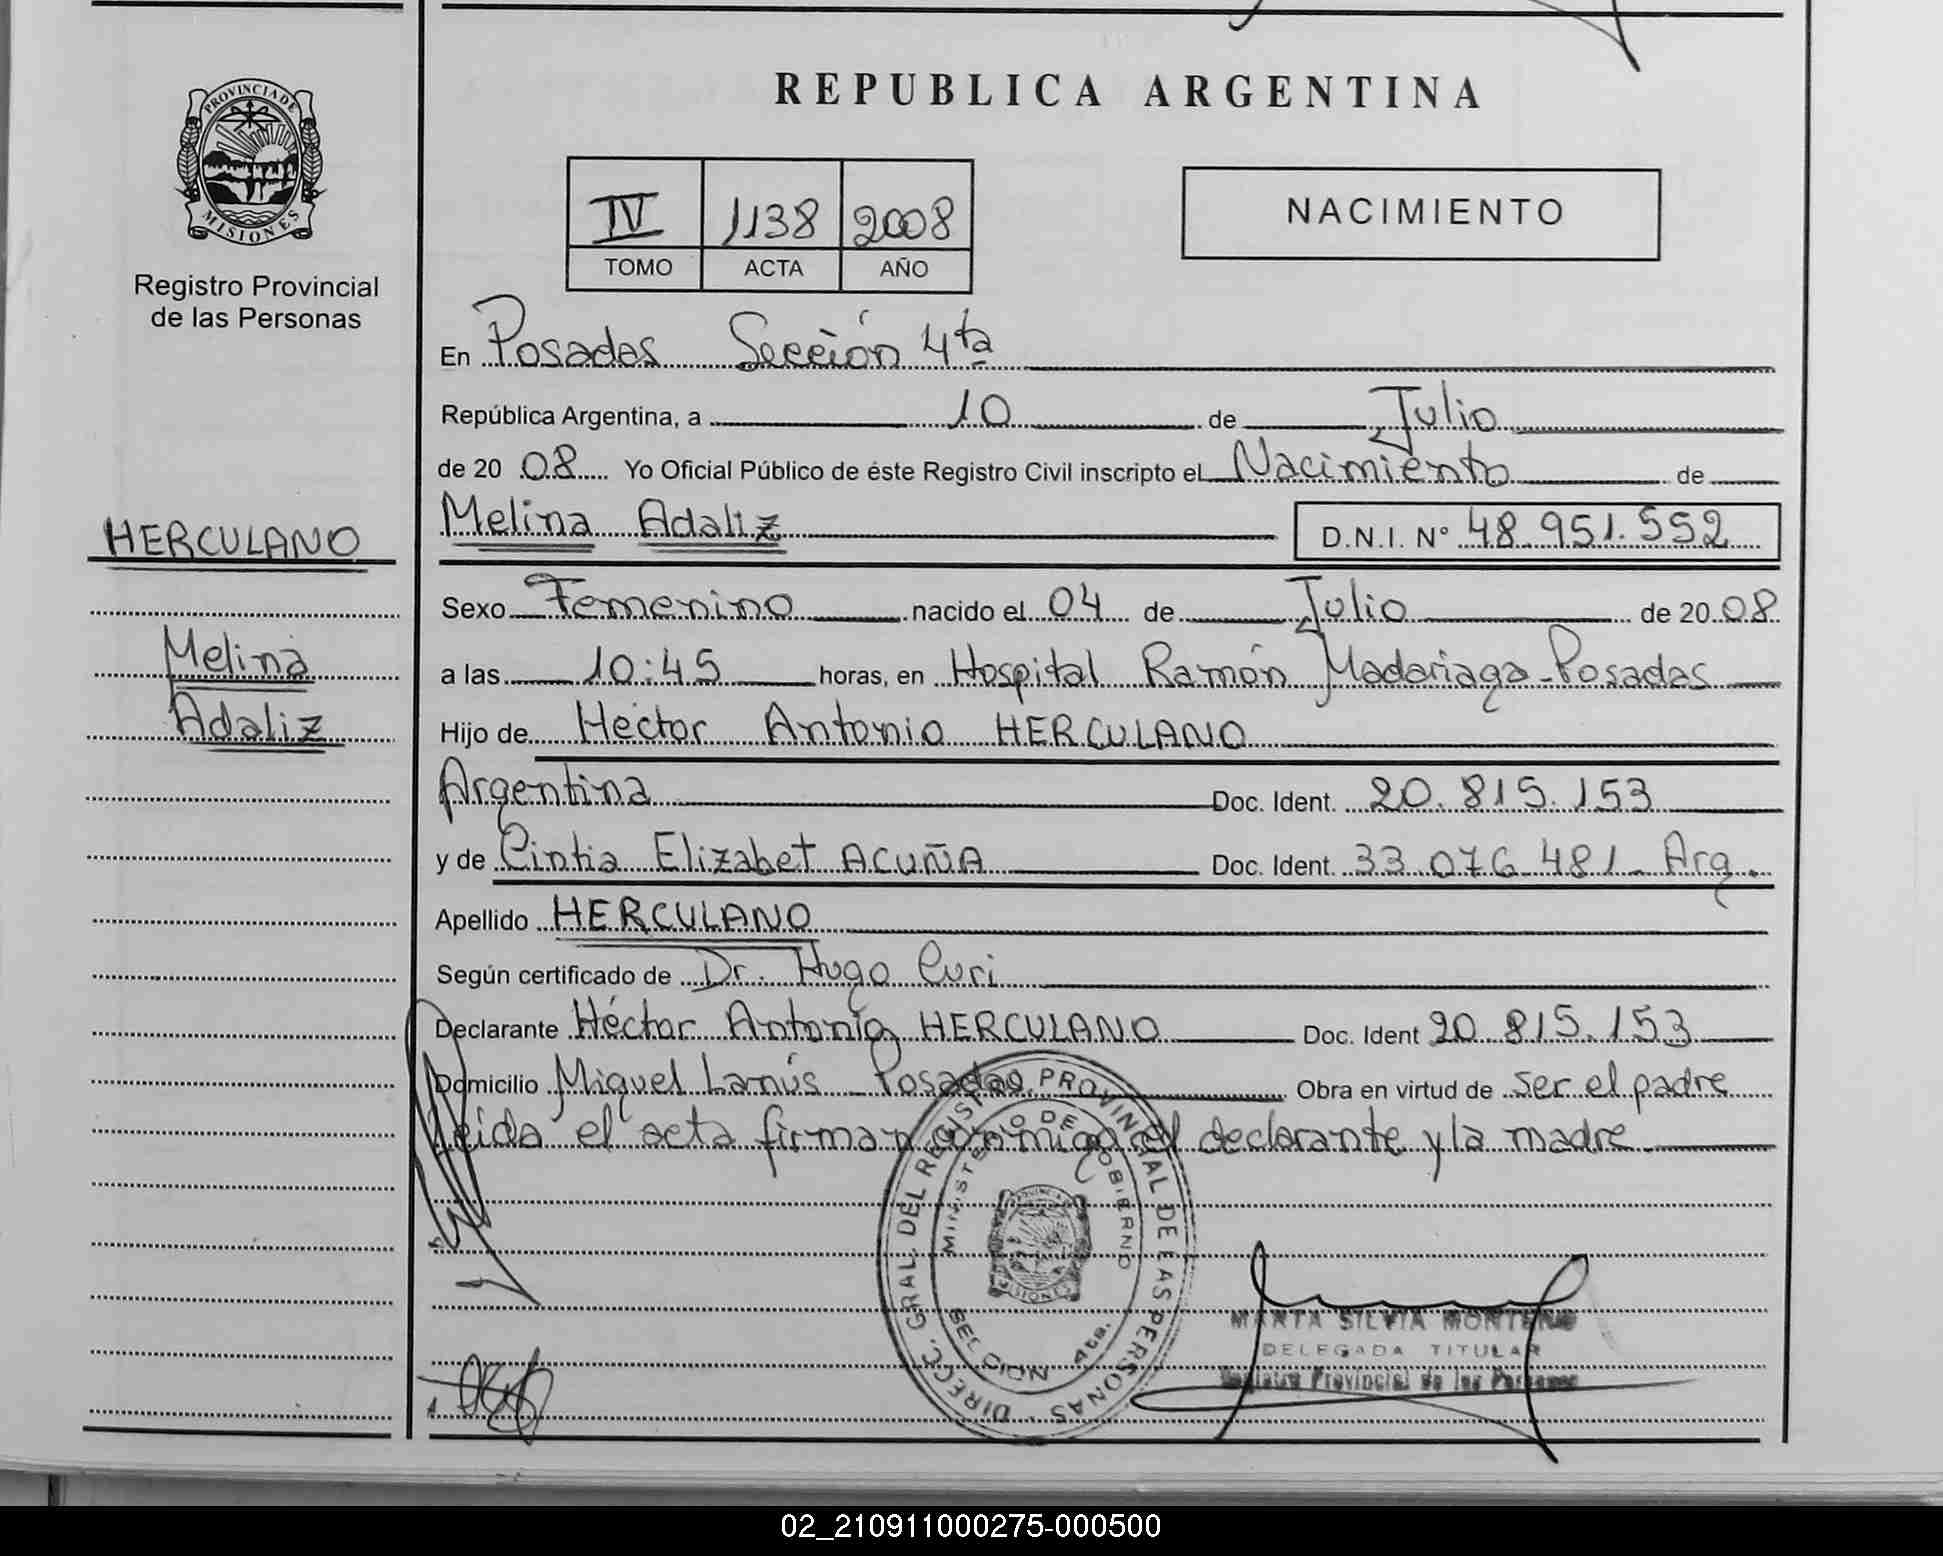 PROVINCIA DE
MISIONES
Registro Provincial
de las Personas
HERCULANO
Melina
Adaliz
REPUBLICA ARGENTINA
IV 1138 2008
TOMO ACTA AÑO
NACIMIENTO
En Posadas Sección 4ta
República Argentina, a 10 de Julio
de 20 08 Yo Oficial Público de éste Registro Civil inscripto el Nacimiento de
Melina Adaliz D.N.I. N° 48.951.552
Sexo Femenino nacido el 04 de Julio de 20 08
a las 10:45 horas, en Hospital Ramón Madariaga - Posadas
Hijo de Héctor Antonio HERCULANO
Argentina Doc. Ident. 20.815.153
y de Cintia Elizabet ACUÑA Doc. Ident. 33.076.481 - Arg.
Apellido HERCULANO
Según certificado de Dr. Hugo Curi
Declarante Héctor Antonio HERCULANO Doc. Ident 20.815.153
Domicilio Miguel Lanús - Posadas Obra en virtud de ser el padre
leida el acta firman conmigo el declarante y la madre
DIRECC. GRAL. DEL REGISTRO PROVINCIAL DE LAS PERSONAS
MINISTERIO DE GOBIERNO
SECCION 4ta.
MARTA SILVIA MONTERO
DELEGADA TITULAR
Registro Provincial de las Personas
02_210911000275-000500